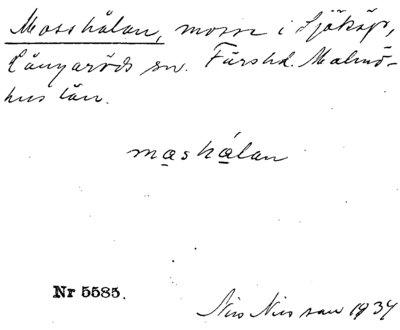 Mosshålan, mosse i Sjököp,
Långaröds sn. Färshd. Malmö-
hus län.
mashålan
Nr 5585.
Nils Nilsson 1934